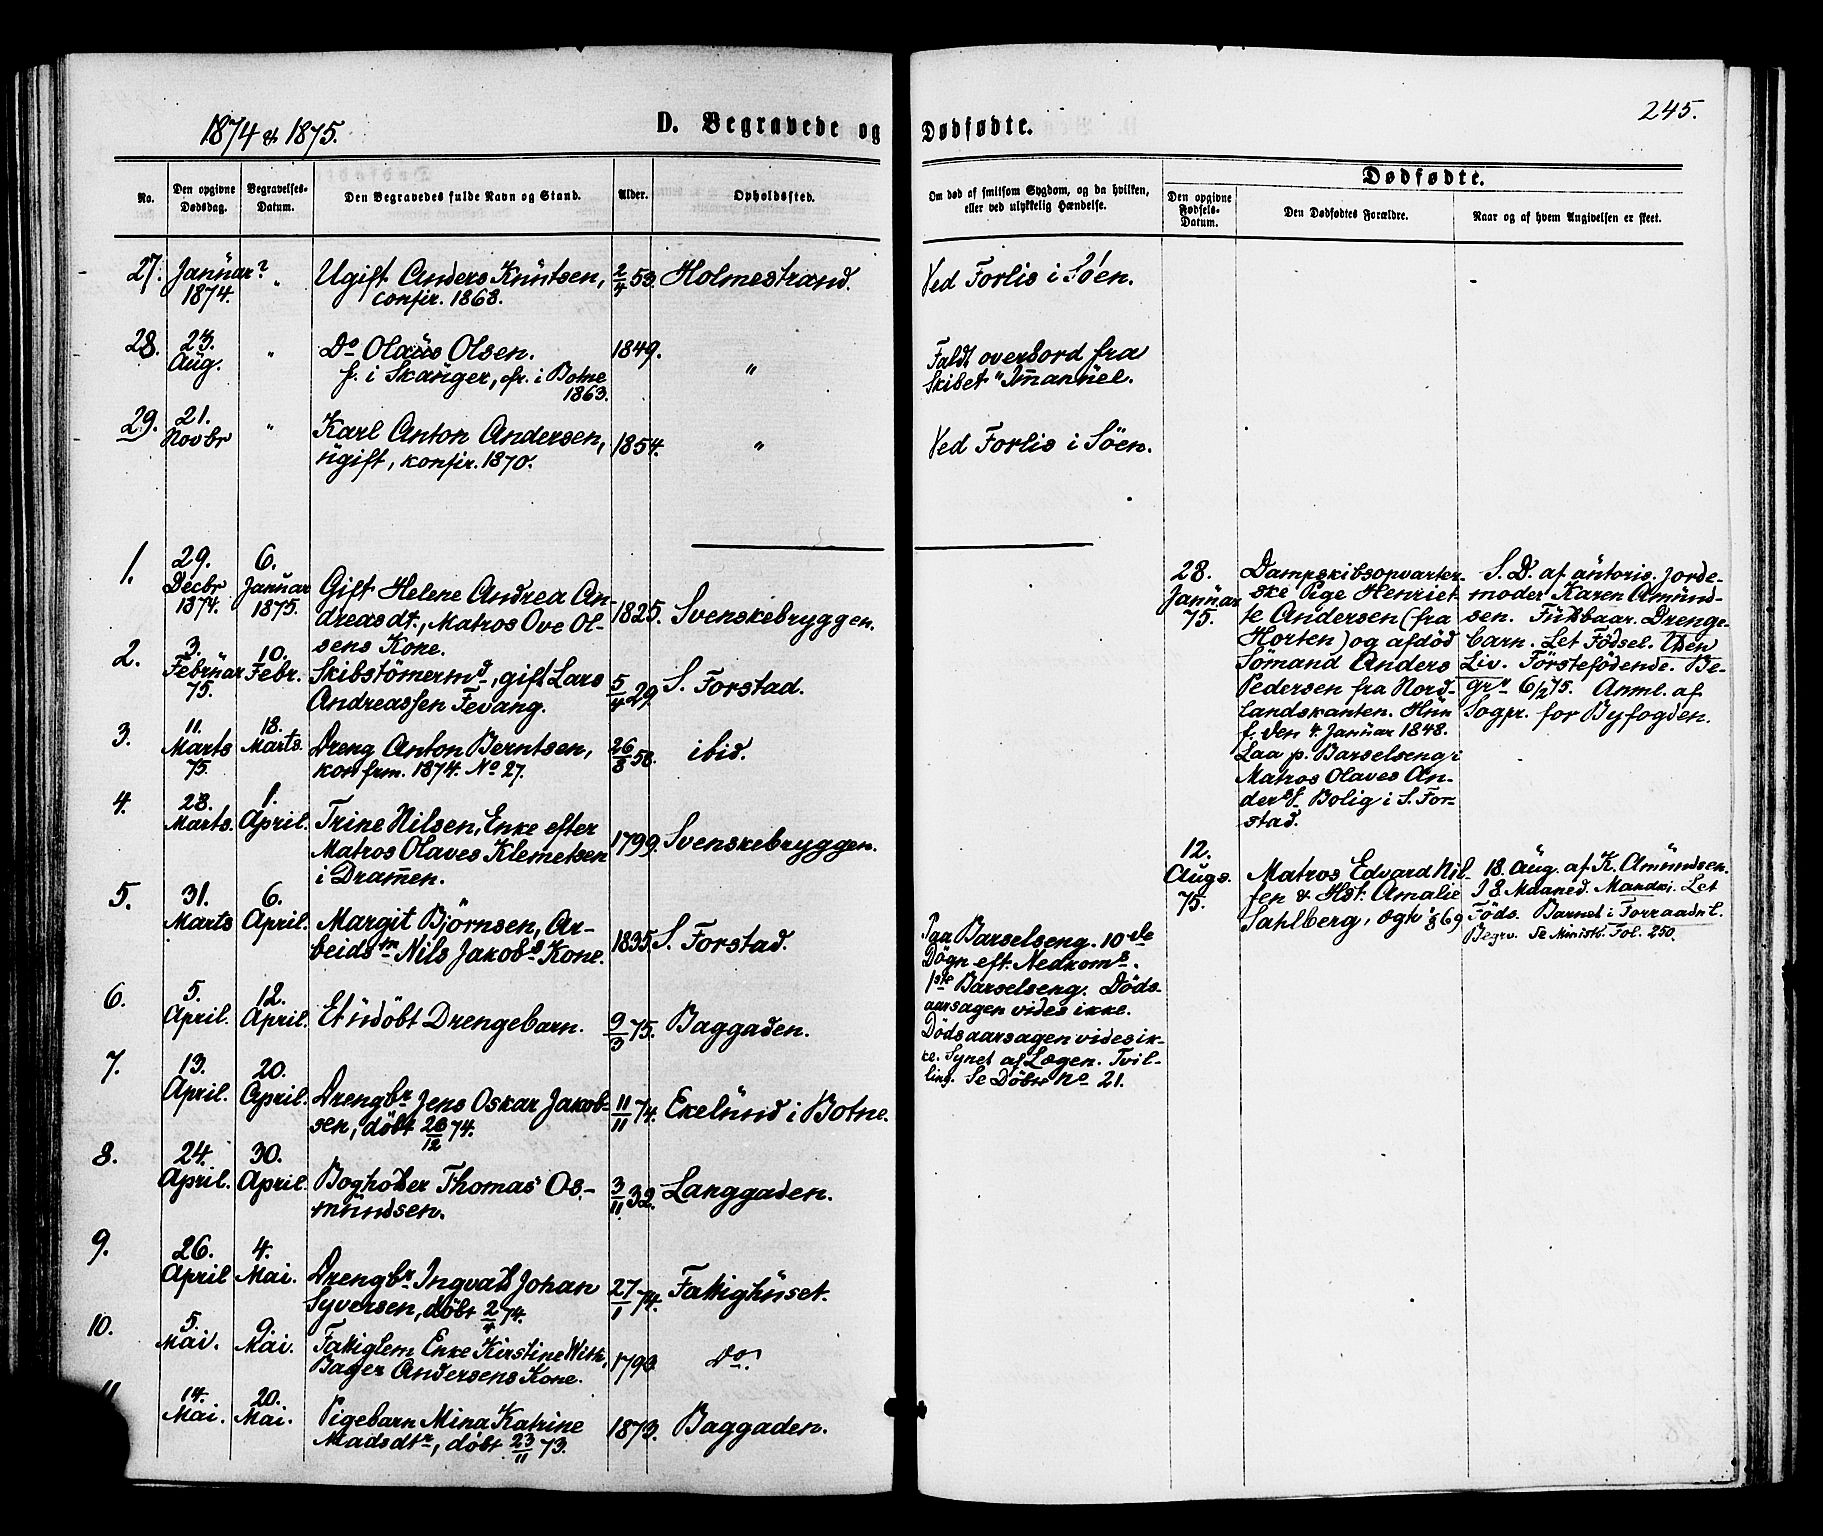 1874 & 1875.
D. Begravede og
Dødfødte.
245.
No.
Den opgivne Dødsdag.
Begravelses-Datum.
Den Begravedes fulde Navn og Stand.
Alder.
Opholdssted.
Om død af smitsom Sygdom, og da hvilken,
eller ved ulykkelig Hændelse.
Dødfødte.
Den opgivne Fødsels-Datum.
Den Dødfødtes Forældre.
Naar og af hvem Angivelsen er skeet.
27. Januar? " Ugift Anders Knutsen, 2/4 53. Holmestrand. Ved Forlis i Søen.
1874. confir. 1868.
28. 23. Aug. " Do Olaus Olsen. 1849. " Faldt overbord fra
f. i Skauger, cfr. i Botne Skibet "Immanuel.
1863.
29. 21. Novbr " Karl Anton Andersen, 1854. " Ved Forlis i Søen.
ugift, konfir. 1870.
1. 29. Decbr 1874. 6. Januar 1875. Gift Helene Andrea An-
dreasdt., Matros Ove Ol- 1825. Svenskebryggen.
sens Kone.
2. 3. Februar 75. 10. Febr. Skibstömermd, gift Lars 5/4 29. S. Forstad.
Andreassen Fevang.
3. 11. Marts 75. 18. Marts. Dreng Anton Berntsen, 26/8 58. ibid.
konfrm. 1874. No 27.
4. 28. Marts. 1. April. Trine Nilsen, Enke efter
Matros Olaves Klemetsen 1799. Svenskebryggen.
i Dramen.
5. 31. Marts 6. April. Margit Björnsen, Ar-
beidsm Nils Jakobs Kone. 1835. S. Forstad.
Paa Barselseng. 10de
Døgn eft. Nedkoms.
1ste Barselseng. Döds-
aarsagen vides ikke.
6. 5. April. 12. April. Et udöbt Drengebarn. 9/3 75. Baggaden.
Dödsaarsagen vides ik-
ke. Synet af Lægen. Tvil-
ling. Se Döbte No 21.
7. 13. April. 20. April. Drengbr Jens Oskar Jakob-
sen, döbt 26/12 74. 11/11 74. Ekelund i Botne.
8. 24. April. 30. April. Bogholder Thomas Os- 3/11 32. Langgaden.
mundsen.
9. 26. April 4. Mai. Drengbr Ingvald Johan 27/1 74. Fattighuset.
Syversen, döbt 2/4 74.
10. 5. Mai. 9. Mai. Fattiglem Enke Kirstine With,
Bager Andersens Kone. 1793 Do.
11 14. Mai. 20. Mai. Pigebarn Mina Katrine 1873. Baggaden.
Madsdtr, döbt 23/11 73.
28. Januar 75.
Dampskibsopvarter-
ske Pige Henriet-
te Andersen (fra
Horten) og afdöd
Sömand Anders
Pedersen fra Nord-
landskanten. Hun
f. den 4. Januar 1848.
Laa p. Barselseng i
Matros Olaves An-
ders. Bolig i S. For-
stad.
S. D. af autoris. Jorde-
moder Karen Amund-
sen. Fuldbaar. Drenge-
barn. Let Födsel. Uden
Liv. Förstefödende. Be-
gr. 6/2 75. Anml. af
Sogpr. for Byfogden.
12. Augs. 75.
Matros Edvard Nil-
sen & Hst. Amalie
Sahlberg, ægtv 69
18. Aug. af K. Amundsen.
I 8. Maaned. Mandkj. Let
Föds. Barnet i Forraadn.
Begrv. Se Fol. 250.